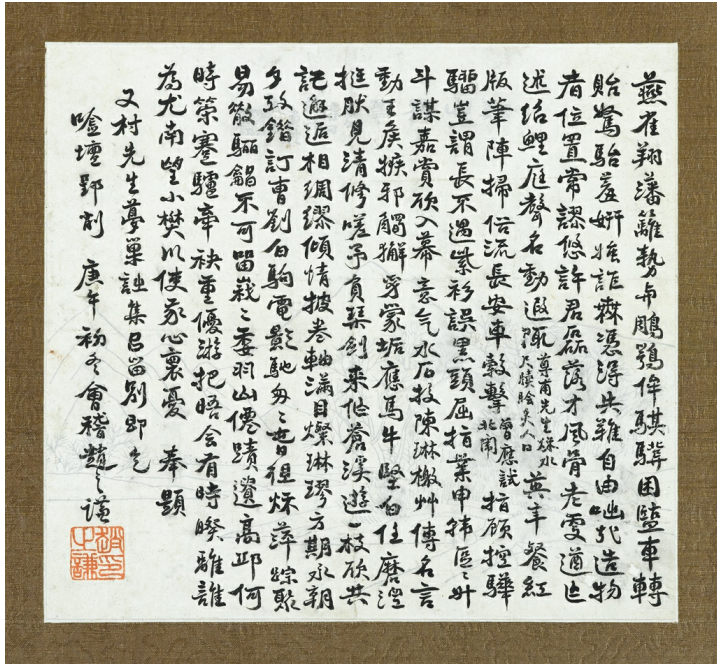 燕雀翔藩籬勢與鵰鶚侔騏驥困鹽車轉
貽駑駘羞妍媸詎無憑得失難自由咄哉造物
者位置常謬悠許君磊落才風骨老更遒近
述紹鯉庭聲名動遐陬尊甫先生秋水尺牘膾炙人口英年餐紅
版筆陣掃俗流長安車轂擊曾應試北闈指顧控驊
騮豈謂長不遇紫衫誤黑頭屈指業申韓區區升
斗謀嘉賞欣入幕意气水石投陳琳檄艸傳名言
動王侯邪觸獬豸蒙垢應馬牛堅白任磨涅
挺肰見清修嗟予負琴劍來作蒼溪遊一枝欣共
託邂逅相綢繆傾情披卷軸滿目燦琳璆方期永朝
夕攷訂曹劉白駒電影馳匆匆昔徂秋萍蹤聚
易散驪不可畱峩峩委羽山僊蹟遺高邱何
時策蹇驢牽袂重優游把晤会有時睽離誰
為尤南望小樊川使我心裏憂 奉題
又村先生夢巢詩集吕畱別即乞
吟壇郢削 庚午初冬會稽趙之謙
趙之謙印